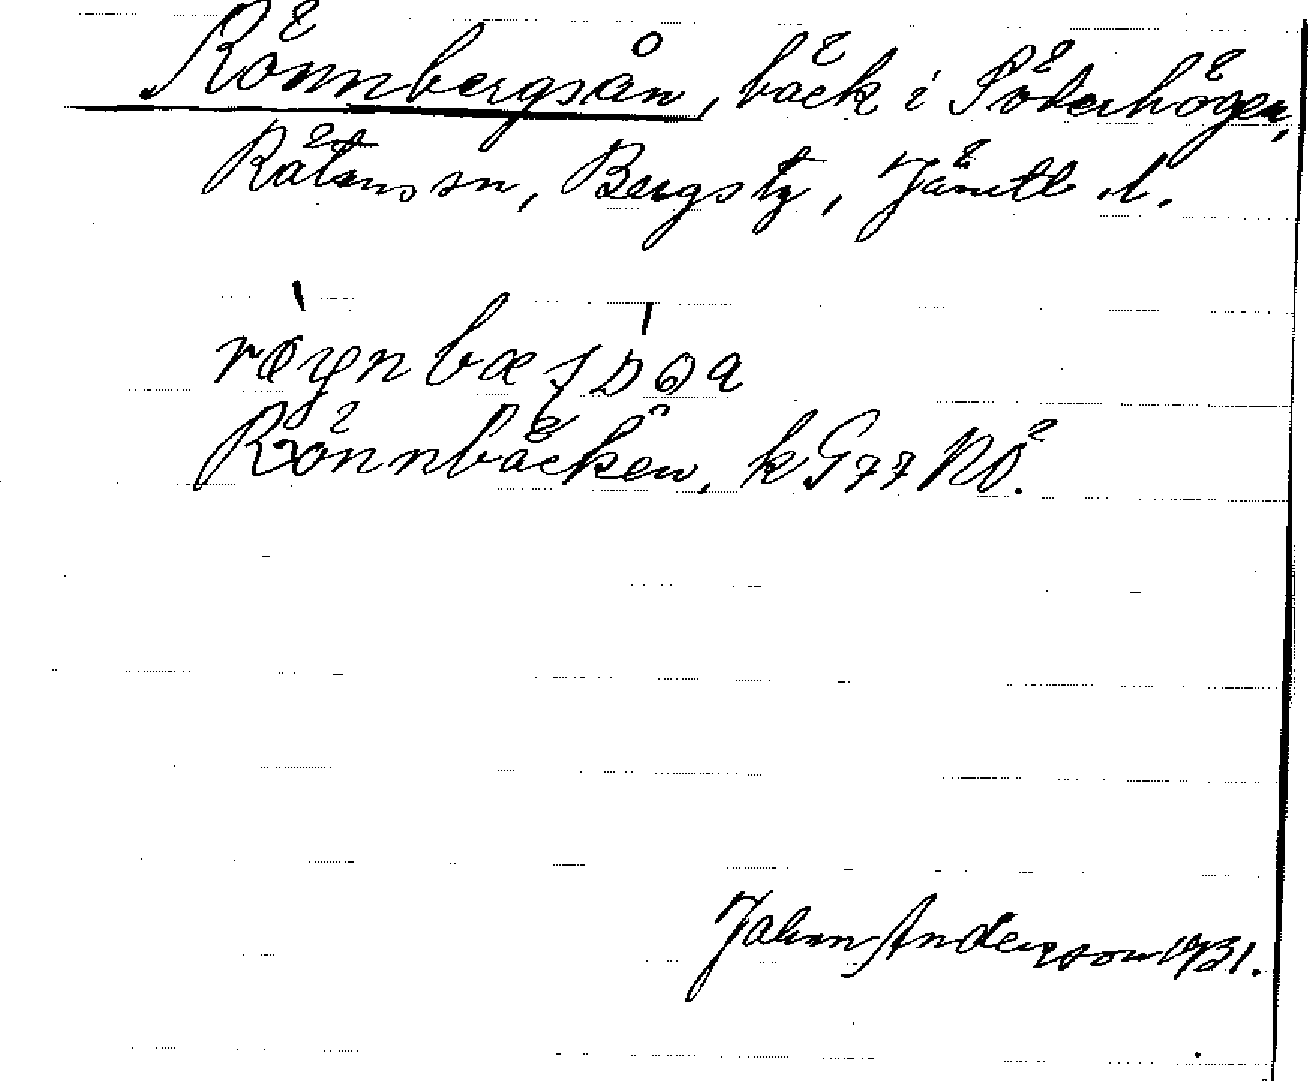 Rönnbergsån, bäck i Söderhögen,
Rätans sn, Bergs tg, Jämtl l.
Rönnbäcken, kG77 NO.
Johan Anderson 1931.